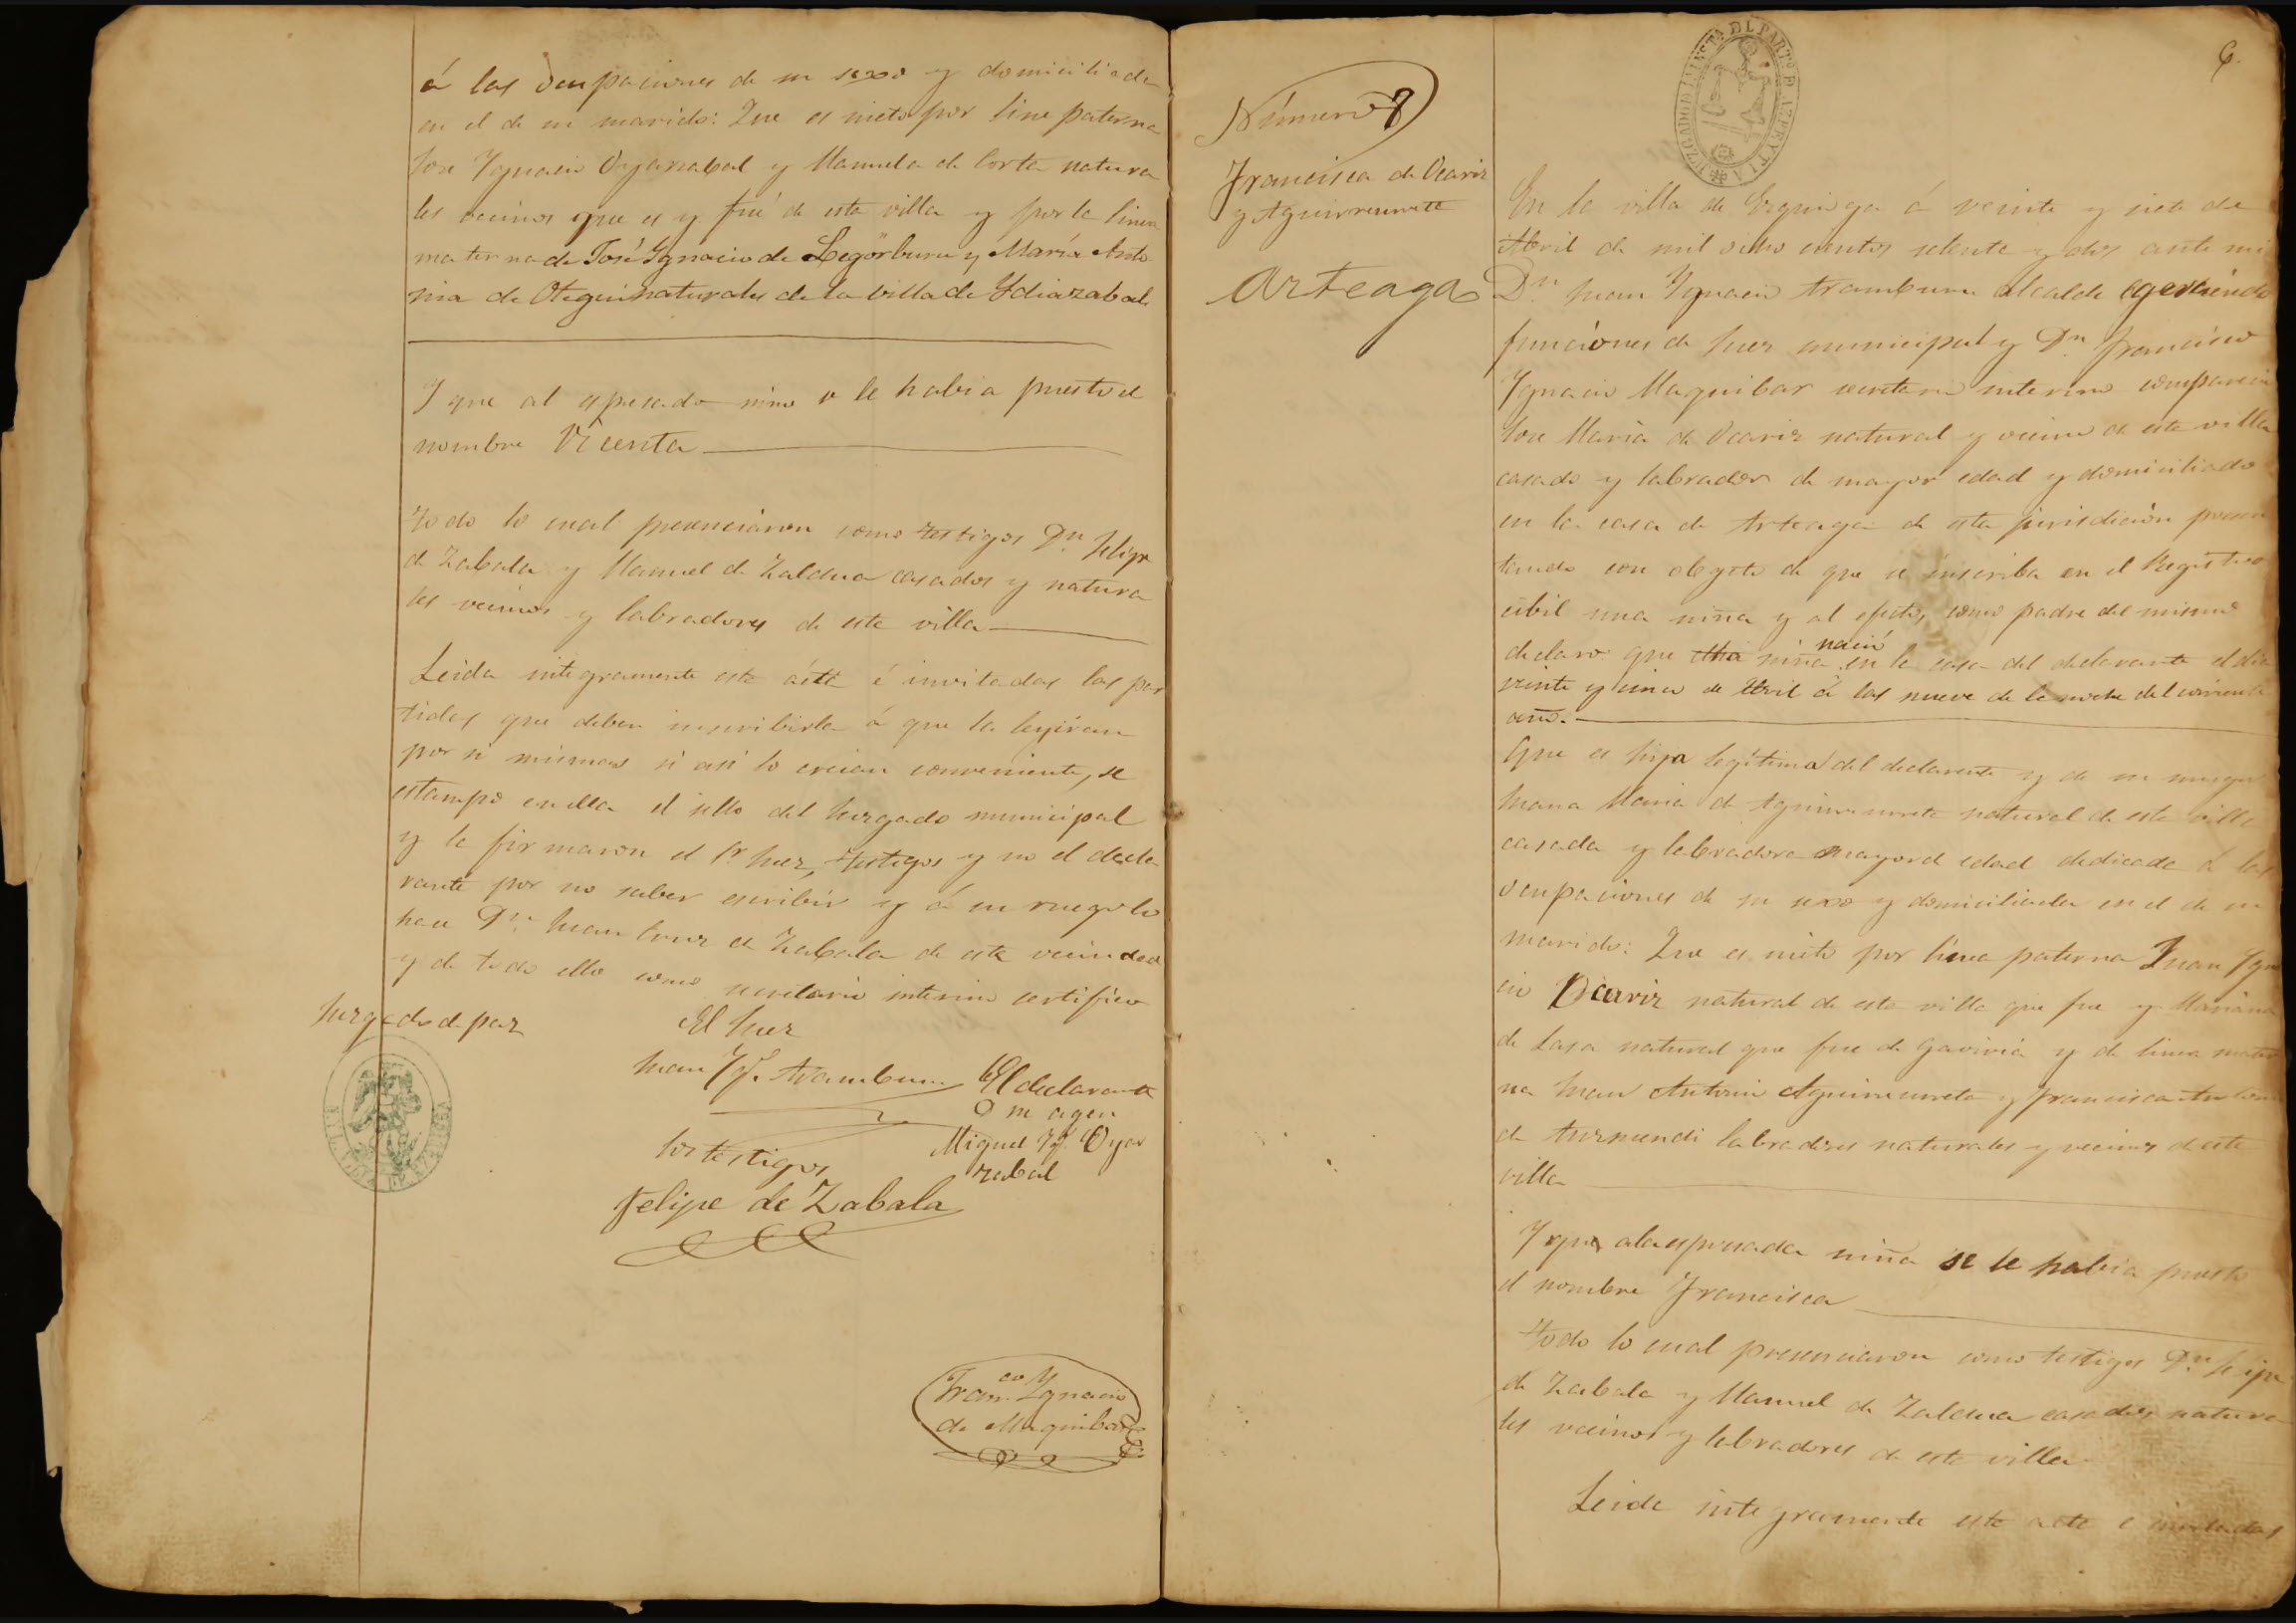 á las ocupaciones de su sexo y domiciliada
en el de su marido: Que es nieto por line paterna
Jose Ygnacio Oyarzabal y Manuela de Corta natura
les vecinos que es y fué de esta villa y por la linea
materna de José Ygnacio de Legorburu y María Anto
nia de Otegui naturales de la billa de Ydiazabal
Y que al espesado nino o le habia puesto el
nombre Vicenta
todo lo cual presenciaron como testigos Dn. Felipe
de Zabala y Manuel de Zaldua casados y natura
les vecinos y labradores de esta villa
Leida integramente esta acta é invitadas las par
tidas que deben inscribirla á que la leyeran
por si mismas si asi lo creian conveniente, se
estampó en ella el sello del Juzgado municipal
y la firmaron el Sr. Juez, testigos y no el decla
rante por no saber escribir y á su ruego lo
hace Dn. Juan Cruz de Zabala de esta vecindad
y de todo ello como secretario interino certifico
Juzgado de paz
El Juez
Juan Yg. Aramburu
El declarante
Miguel Yg. Oyar
zabal
los testigos
Felipe de Zabala
Franco. Ygnacio
de Maquibar
6.
Número 8
Francisca de Ocariz
y Aguirreurreta
Arteaga
JUZGADO DE 1A INSTA DEL PARTO DE AZPEYTIA
En la villa de Ezquioga á veinte y siete de
Abril de mil ocho cientos setenta y dos ante mi
Dn. Juan Ygnacio Aramburu Alcalde egerciendo
funciónes de Juez municipal y Dn. Francisco
Ygnacio Maquibar secretario interino comparecio
Jose Maria de Ocariz natural y vecino de esta villa
casado y labrador de mayor edad y domiciliado
en la casa de Arteaga de esta jurisdición presen
tando con obgeto de que se inscriba en el Registro
cibil una niña y al efecto, como padre del mismo
declaro: que dha niña nació en la casa del declarante el dia
veinte y cinco de Abril á las nueve de la noche del corriente
año.
Que es hija legítima del declarante y de su muger
Juana Maria de Aguirreurreta natural de esta villa
casada y labradora mayor d edad dedicada á las
ocupaciones de su sexo y domiciliada en el de su
marido: Que es nieto por línea paterna Juan Ygna
cio Ocariz natural de esta villa que fue y Mariana
de Lasa natural que fue de Gaviria y de linea mater
na Juan Antonio Aguirreurreta y Francisca Antonia
de Iturmendi labradores naturales y vecinos de esta
villa
Y que a la espresada niña se le habia puesto
el nombre Francisca
todo lo cual presenciaron como testigos Dn. Felipe
de Zabala y Manuel de Zaldua casados natura
les vecinos y labradores de esta villa
Leida integramente esta acta é invitadas